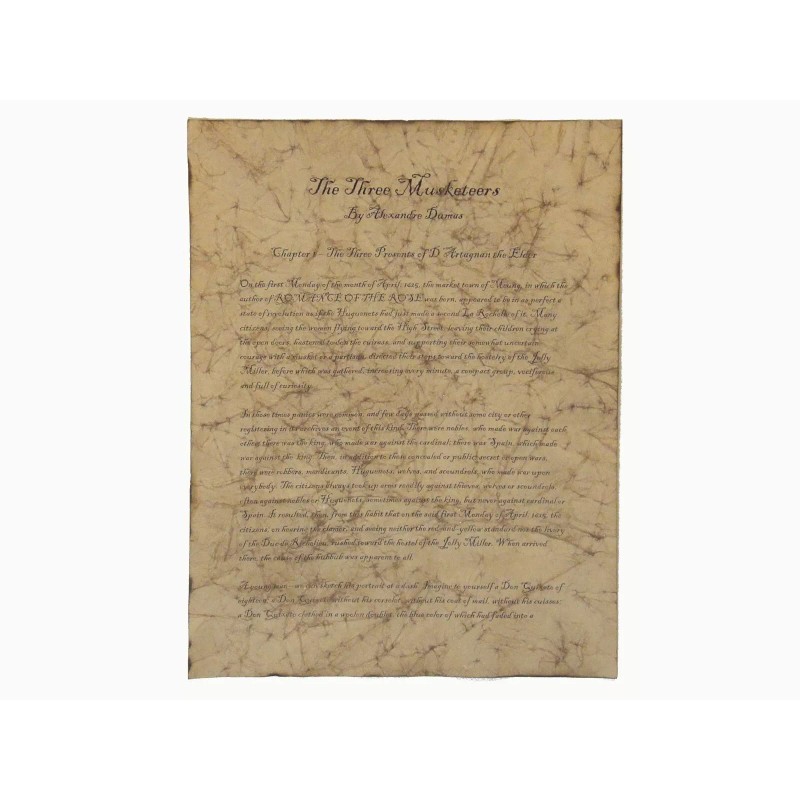 The Three Musketeers
By Alexandre Dumas
Chapter 1 - The Three Presents of D Artagnan the Elder
On the first Monday of the month of April, 1625, the market town of Meung, in which the
author of ROMANCE OF THE ROSE was born, appeared to be in as perfect a
state of revolution as if the Huguenots had just made a second La Rochelle of it. Many
citizens, seeing the women flying toward the High Street, leaving their children crying at
the open doors, hastened to don the cuirass, and supporting their somewhat uncertain
courage with a musket or a partisan, directed their steps toward the hostelry of the Jolly
Miller, before which was gathered, increasing every minute, a compact group, vociferous
and full of curiosity.
In those times panics were common, and few days passed without some city or other
registering in its archives an event of this kind. There were nobles, who made war against each
other; there was the king, who made war against the cardinal; there was Spain, which made
war against the king. Then, in addition to these concealed or public, secret or open wars,
there were robbers, mendicants, Huguenots, wolves, and scoundrels, who made war upon
everybody. The citizens always took up arms readily against thieves, wolves or scoundrels,
often against nobles or Huguenots, sometimes against the king, but never against cardinal or
Spain. It resulted, then, from this habit that on the said first Monday of April, 1625, the
citizens, on hearing the clamor, and seeing neither the red-and-yellow standard nor the livery
of the Duc de Richelieu, rushed toward the hostel of the Jolly Miller. When arrived
there, the cause of the hubbub was apparent to all.
A young man--we can sketch his portrait at a dash. Imagine to yourself a Don Quixote of
eighteen; a Don Quixote without his corselet, without his coat of mail, without his cuisses;
a Don Quixote clothed in a woolen doublet, the blue color of which had faded into a